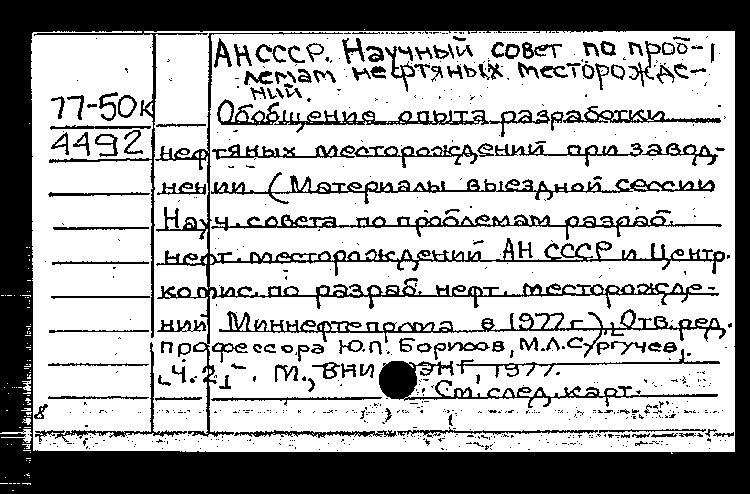 АН СССР. Научный совет по проб-
лемам нефтяных месторожде-
ний.
77-50к Обобщение опыта разработки
4492 нефтяных месторождений при завод-
нении. (Материалы выездной сессии
Науч. совета по проблемам разраб.
нефт. месторождений АН СССР и Центр.
комис. по разраб. нефт. месторожде-
ний Миннефтепрома в 1977 г.). [Отв. ред.
профессора Ю.П. Борисов, М.Л. Сургучев].
[Ч. 2]. М., 1977.
См. след. карт.
8